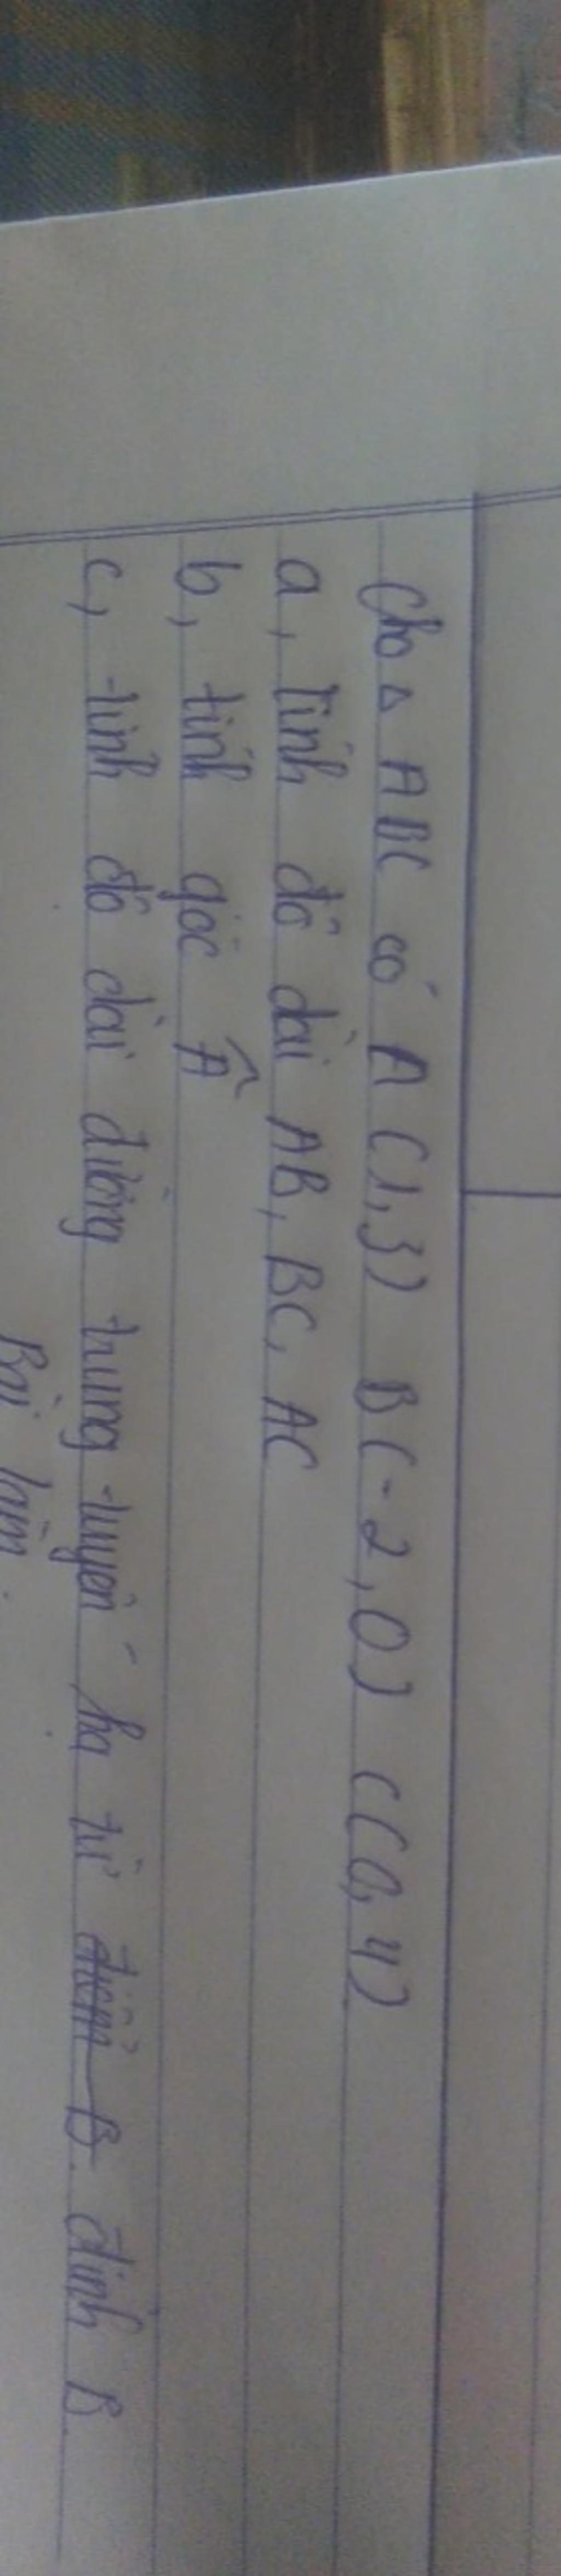 Cho △ ABC có A (1,3) B(-2,0) C(0,4)
a, Tính độ dài AB, BC, AC
b, tính góc Â
c, tính độ dài đường trung tuyến hạ từ điểm B. đỉnh B.
Bài làm.